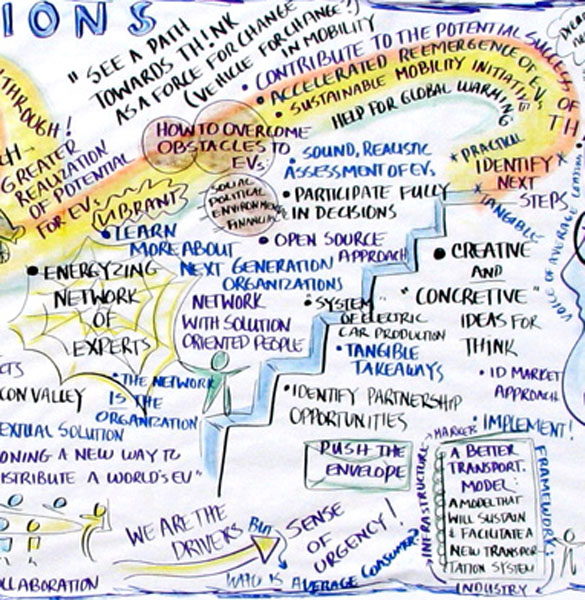 IONS
" SEE A PATH
TOWARDS TH!NK
AS A FORCE FOR CHANGE
(VEHICLE FOR CHANGE?)
IN MOBILITY
• CONTRIBUTE TO THE POTENTIAL SUCCESS OF TH
• ACCELERATED REEMERGENCE OF EV
• SUSTAINABLE MOBILITY INITIATIVE
HELP FOR GLOBAL WARMING
THROUGH!
GREATER
REALIZATION
OF POTENTIAL
FOR EV
HOW TO OVERCOME
OBSTACLES TO
EVs:
SOCIAL
POLITICAL
ENVIRONMENTAL
FINANCIAL
VIBRANT
• SOUND, REALISTIC
ASSESSMENT OF EVs
• PARTICIPATE FULLY
IN DECISIONS
* PRACTICAL
IDENTIFY *
NEXT
* STEPS
TANGIBLE
• LEARN
MORE ABOUT
NEXT GENERATION
ORGANIZATIONS
• OPEN SOURCE
APPROACH
• ENERGYZING
NETWORK
OF
EXPERTS
NETWORK
WITH SOLUTION
ORIENTED PEOPLE
• "SYSTEM"
OF ELECTRIC
CAR PRODUCTION
• TANGIBLE
TAKEAWAYS
• CREATIVE
AND
"CONCRETIVE"
IDEAS FOR
THINK
• ID MARKET
APPROACH
VOICE OF AVERAGE
CTS
CON VALLEY
EXTUAL SOLUTION
• THE NETWORK
IS THE
ORGANIZATION
ONING A NEW WAY TO
ISTRIBUTE A WORLD'S EV"
• IDENTIFY PARTNERSHIP
OPPORTUNITIES
PUSH THE
ENVELOPE
• IMPLEMENT!
MARKET
INFRASTRUCTURE
FRAMEWORKS
INDUSTRY
A BETTER
TRANSPORT.
MODEL:
A MODEL THAT
WILL SUSTAIN
& FACILITATE A
NEW TRANSPOR-
TATION SYSTEM
WE ARE THE
DRIVERS
BUT
WHO IS AVERAGE CONSUMER?
SENSE
OF
URGENCY!
OLLABORATION